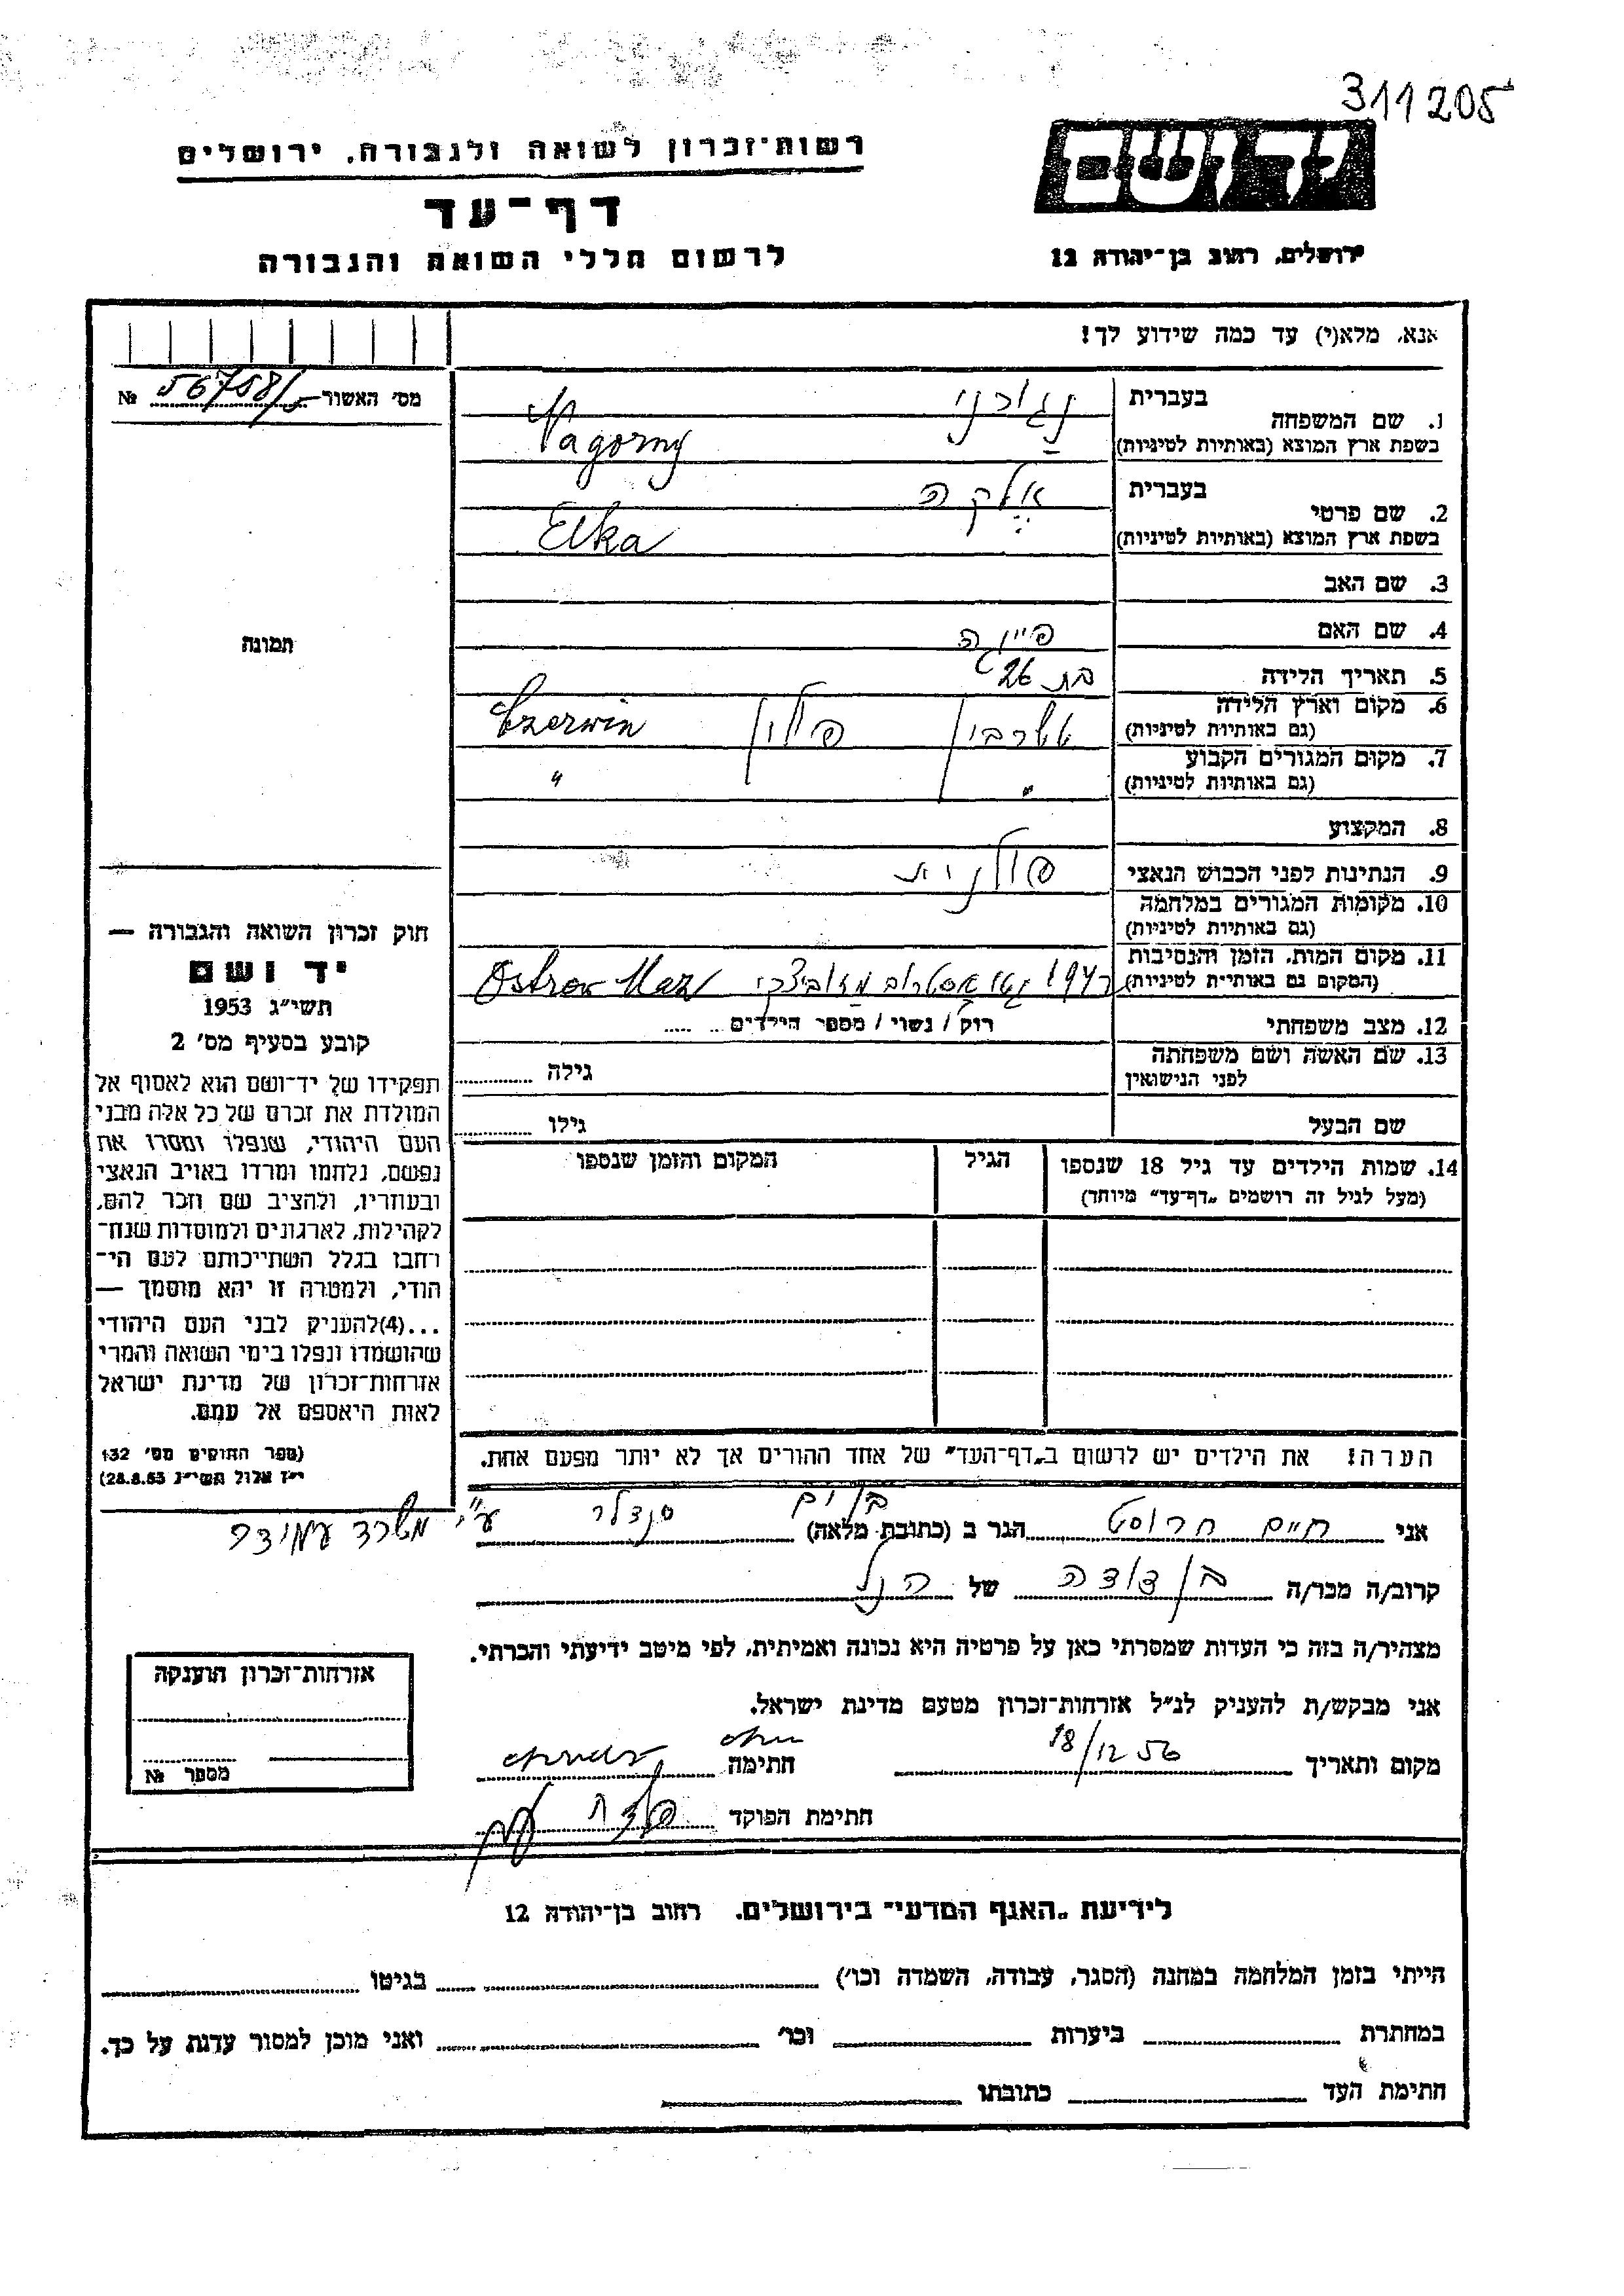 311205
יד ושם
רשות־זכרון לשואה ולגבורה, ירושלים
דף־עד
ירושלים, רחוב בן־יהודה 12
לרשום חללי השואה והגבורה
אנא, מלא(י) עד כמה שידוע לך!
מס' האשור 56758/5 №
1. שם המשפחה
בעברית נגורני
בשפת ארץ המוצא (באותיות לטיניות) Nagorny
2. שם פרטי
בעברית אלקה
בשפת ארץ המוצא (באותיות לטיניות) Elka
3. שם האב
4. שם האם פייגה
תמונה
5. תאריך הלידה בת 26
6. מקום וארץ הלידה
(גם באותיות לטיניות) פולין Czerwin
7. מקום המגורים הקבוע
(גם באותיות לטיניות) " "
8. המקצוע
9. הנתינות לפני הכבוש הנאצי פולנית
10. מקומות המגורים במלחמה
(גם באותיות לטיניות)
11. מקום המות, הזמן והנסיבות
(המקום גם באותיות לטיניות) 1941 אוסטרוב מזוביצקי Ostrow Maz
12. מצב משפחתי רוק / נשוי / מספר הילדים
13. שם האשה ושם משפחתה
לפני הנישואין גילה
שם הבעל גילו
14. שמות הילדים עד גיל 18 שנספו הגיל המקום והזמן שנספו
(מעל לגיל זה רושמים "דף־עד" מיוחד)
חוק זכרון השואה והגבורה —
יד ושם
תשי"ג 1953
קובע בסעיף מס' 2
תפקידו של יד־ושם הוא לאסוף אל
המולדת את זכרם של כל אלה מבני
העם היהודי, שנפלו ומסרו את
נפשם, נלחמו ומרדו באויב הנאצי
ובעוזריו, ולהציב שם וזכר להם,
לקהילות, לארגונים ולמוסדות שנח־
רבו בגלל השתייכותם לעם הי־
הודי, ולמטרה זו יהא מוסמך —
...(4) להעניק לבני העם היהודי
שהושמדו ונפלו בימי השואה והמרי
אזרחות־זכרון של מדינת ישראל
לאות היאספם אל עמם.
(ספר החוקים מס' 132
י"ז אלול תשי"ג 28.8.53)
הערה! את הילדים יש לרשום ב"דף־העד" של אחד ההורים אך לא יותר מפעם אחת.
אני חיים חרוסט הגר ב (כתובת מלאה) בת ים סנדלר ע"י משרד עמידר
קרוב/ה מכר/ה בן דודה של הנ"ל
מצהיר/ה בזה כי העדות שמסרתי כאן על פרטיה היא נכונה ואמיתית, לפי מיטב ידיעתי והכרתי.
אני מבקש/ת להעניק לנ"ל אזרחות־זכרון מטעם מדינת ישראל.
מקום ותאריך 18/12 56 חתימה
חתימת הפוקד
אזרחות־זכרון הוענקה
מספר №
לידיעת "האגף המדעי" בירושלים, רחוב בן־יהודה 12
הייתי בזמן המלחמה במחנה (הסגר, עבודה, השמדה וכו') בגיטו
במחתרת ביערות וכו' ואני מוכן למסור עדות על כך.
חתימת העד כתובתו